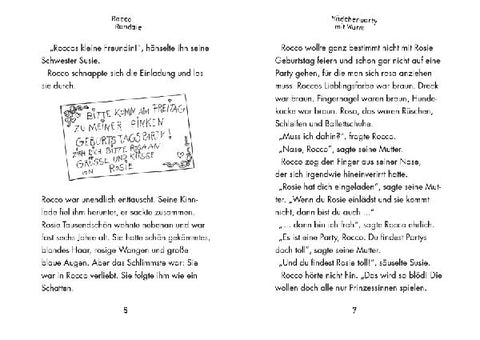 Rocco
Randale
„Roccos kleine Freundin!“, hänselte ihn seine
Schwester Susie.
Rocco schnappte sich die Einladung und las
sie durch.
BITTE KOMM AM FREITAG
ZU MEINER PINKEN
GEBURTSTAGSPARTY!
ZIEH DICH BITTE ROSA AN
GRÜSSE UND KÜSSE
VON
ROSIE
Rocco war unendlich enttäuscht. Seine Kinn-
lade fiel ihm herunter, er sackte zusammen.
Rosie Tausendschön wohnte nebenan und war
fast sechs Jahre alt. Sie hatte schön gekämmtes,
blondes Haar, rosige Wangen und große
blaue Augen. Aber das Schlimmste war: Sie
war in Rocco verliebt. Sie folgte ihm wie ein
Schatten.
6
Mädchenparty
mit Wurm
Rocco wollte ganz bestimmt nicht mit Rosie
Geburtstag feiern und schon gar nicht auf eine
Party gehen, für die man sich rosa anziehen
muss. Roccos Lieblingsfarbe war braun. Dreck
war braun. Fingernagel waren braun, Hunde-
kacke war braun. Rosa, das waren Rüschen,
Schleifen und Ballettschuhe.
„Muss ich dahin?“, fragte Rocco.
„Nase, Rocco“, sagte seine Mutter.
Rocco zog den Finger aus seiner Nase,
der sich irgendwie hineinverirrt hatte.
„Rosie hat dich eingeladen“, sagte seine Mut-
ter. „Wenn du Rosie einlädst und sie kommt
nicht, dann bist du auch ...“
„... dann bin ich froh“, sagte Rocco ehrlich.
„Es ist eine Party, Rocco. Du findest Partys
doch toll“, sagte seine Mutter.
„Und du findest Rosie toll!“, säuselte Susie.
Rocco hörte nicht hin. „Das wird so blöd! Die
wollen doch alle nur Prinzessinnen spielen.
7